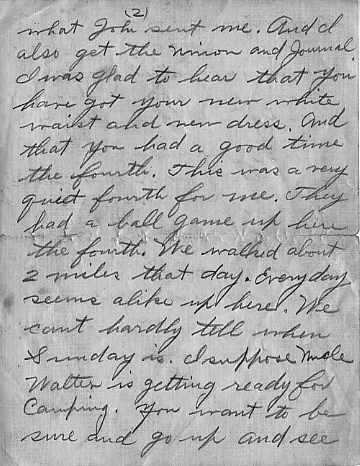 (2)
what John sent me. And I
also get the Union and Journal.
I was glad to hear that you
have got your new white
waist and new dress. And
that you had a good time
the fourth. This was a very
quiet fourth for me. They
had a ball game up here
the fourth. We walked about
2 miles that day. Every day
seems alike up here. We
cant hardly tell when
Sunday is. I suppose Uncle
Walter is getting ready for
Camping. You want to be
sure and go up and see